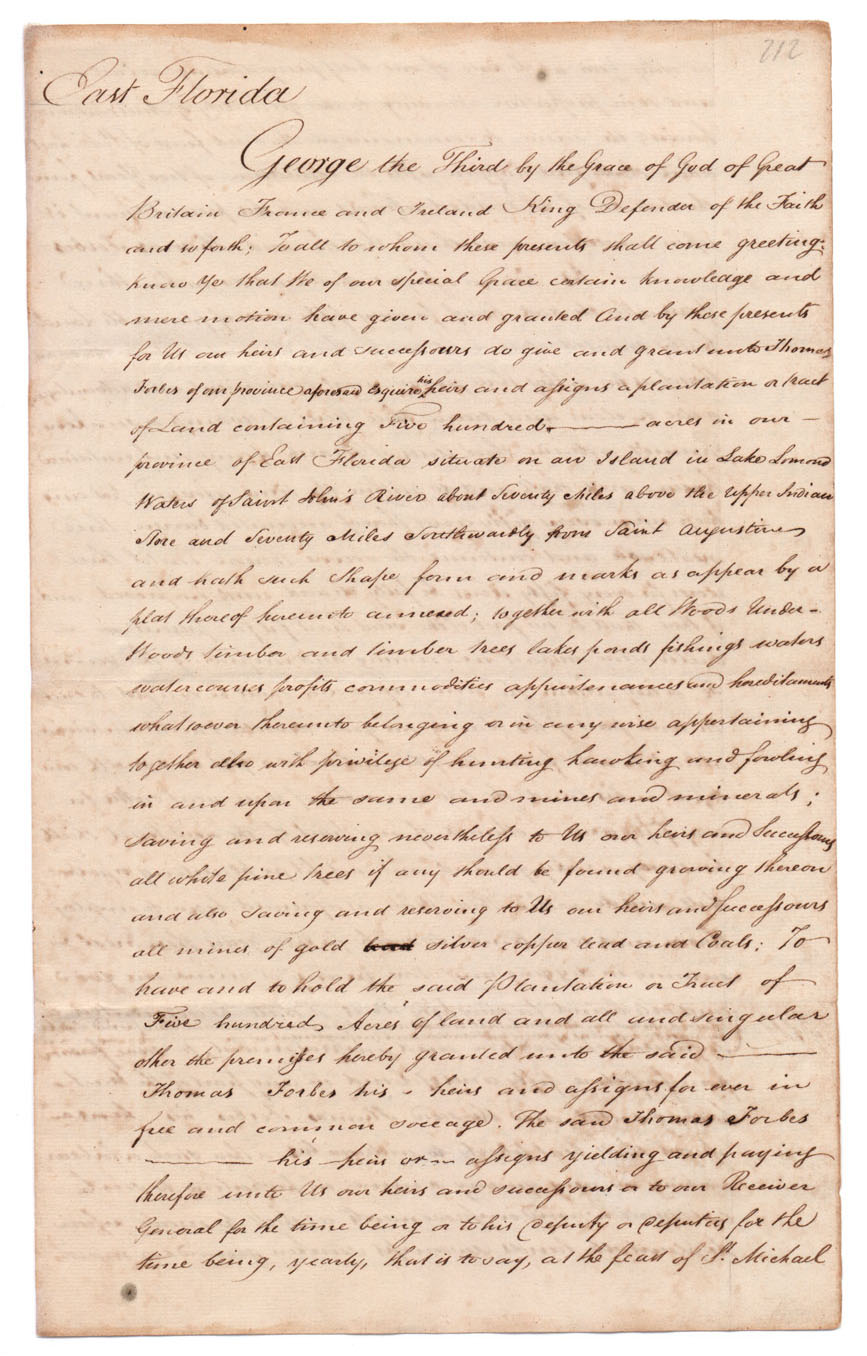 212
East Florida
George the Third by the Grace of God of Great
Britain France and Ireland King Defender of the Faith
and so forth; To all to whom these presents shall come greeting:
Know Ye that We of our special Grace certain knowledge and
mere motion have given and granted And by these presents
for Us our heirs and successours do give and grant unto Thomas
Forbes of our province aforesaid Esquire his heirs and assigns a plantation or tract
of Land containing Five hundred acres in our
province of East Florida situate on an Island in Lake Lomond
Waters of Saint John's River about Seventy Miles above the upper Indian
Store and Seventy Miles Southwardly from Saint Augustine
and hath such Shape form and marks as appear by a
plat thereof hereunto annexed; together with all Woods Under-
Woods timber and timber trees lakes ponds fishings waters
watercourses profits commodities appurtenances and hereditaments
whatsoever thereunto belonging or in any wise appertaining
together also with privilege of hunting hawking and fowling
in and upon the same and mines and minerals;
saving and reserving nevertheless to Us our heirs and Successours
all white pine trees if any should be found growing thereon
and also saving and reserving to Us our heirs and successours
all mines of gold silver copper lead and Coals: To
have and to hold the said Plantation or Tract of
Five hundred Acres of land and all and singular
other the premises hereby granted unto the said
Thomas Forbes his - heirs and assigns for ever in
free and common soccage. The said Thomas Forbes
his heirs or assigns yielding and paying
therefore unto Us our heirs and successours or to our Receiver
General for the time being or to his Deputy or Deputies for the
time being, yearly, that is to say, at the feast of St. Michael